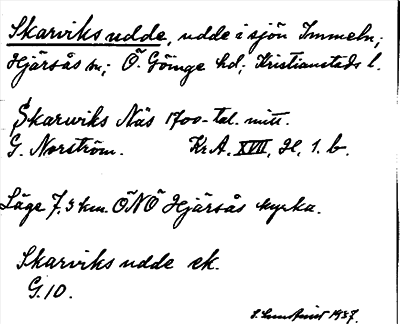 Skarviks udde, udde i sjön Immeln;
Hjärsås sn; Ö. Göinge hd; Kristianstads l.
Skarwiks Näs 1700-tal. mitt.
G. Norström. Kr.A. XVIII, H, 1. b.
Läge 7,3 km. ÖNÖ Hjärsås kyrka.
Skarviks udde ek.
G.10.
1937.